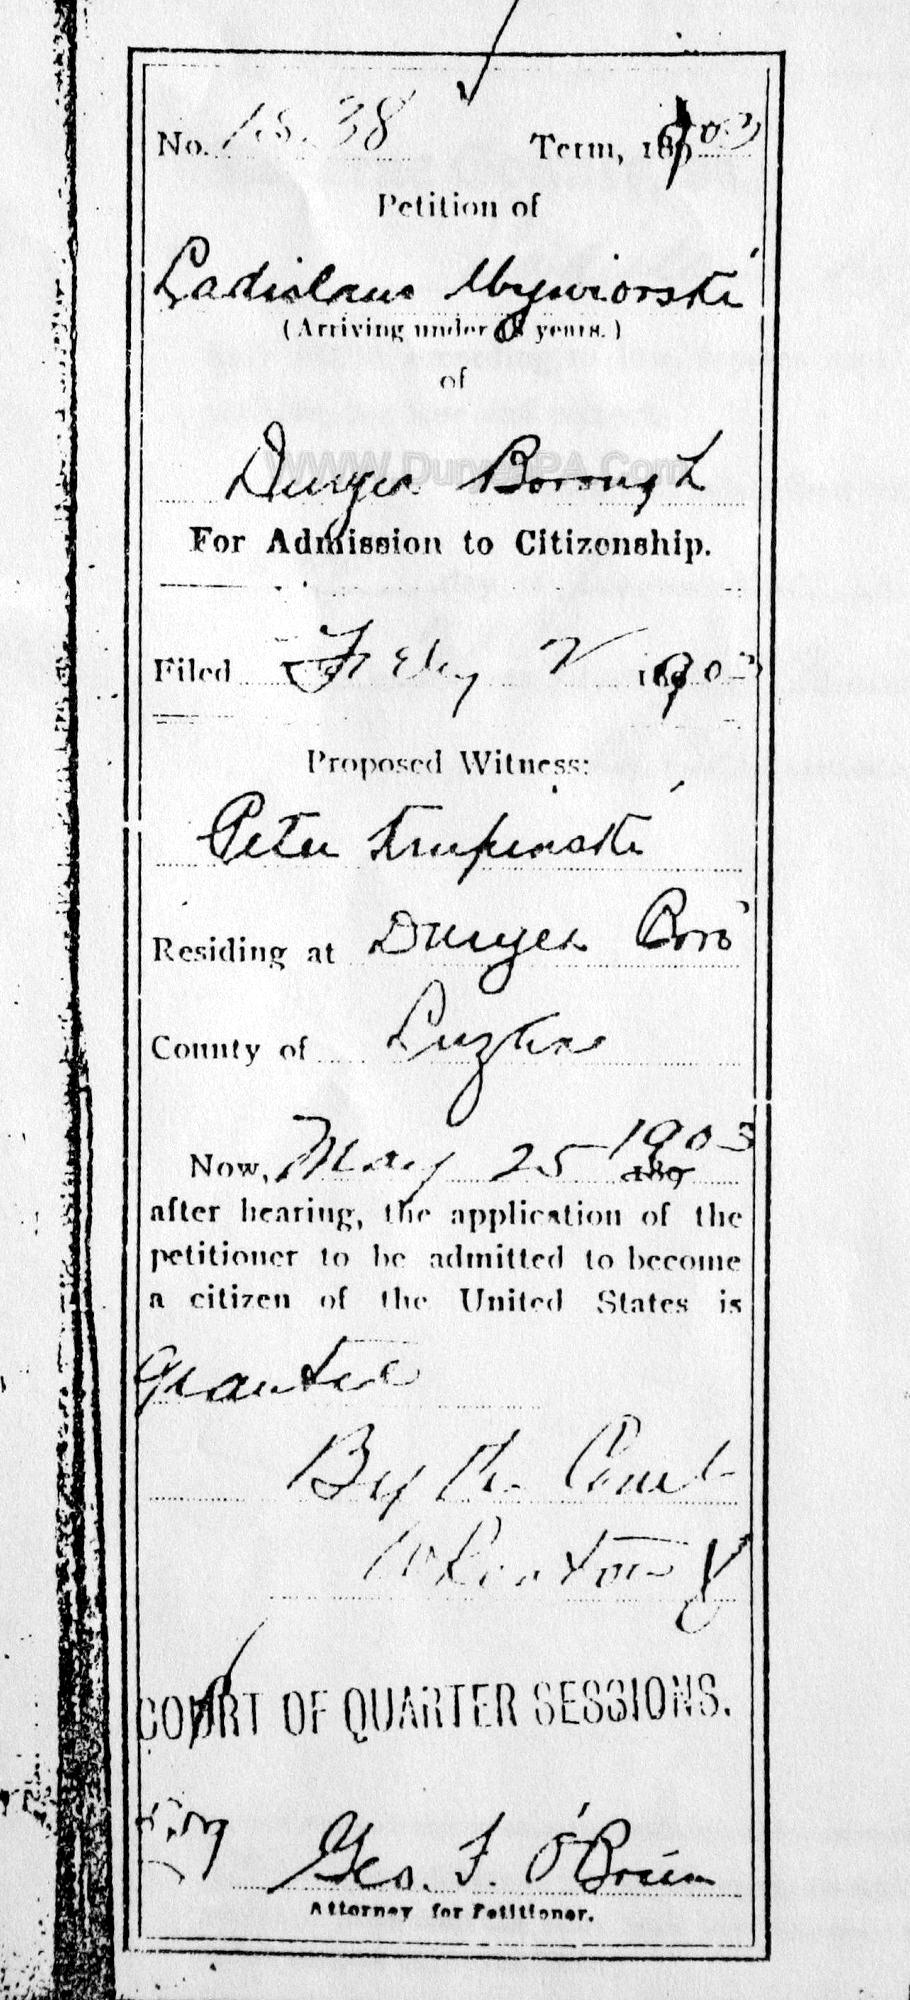 No. 1538 Term, 1903
Petition of
Ladislaus
(Arriving under 18 years.)
of
WWW.DuryeaPA.Com
Duryea Borough
For Admission to Citizenship.
Filed Feby 2 1903
Proposed Witness:
Peter Krupinski
Residing at Duryea Boro
County of Luzerne
Now, May 25 1903
after hearing, the application of the
petitioner to be admitted to become
a citizen of the United States is
Granted
By the Court
COURT OF QUARTER SESSIONS.
Geo. F. O'Brien
Attorney for Petitioner.